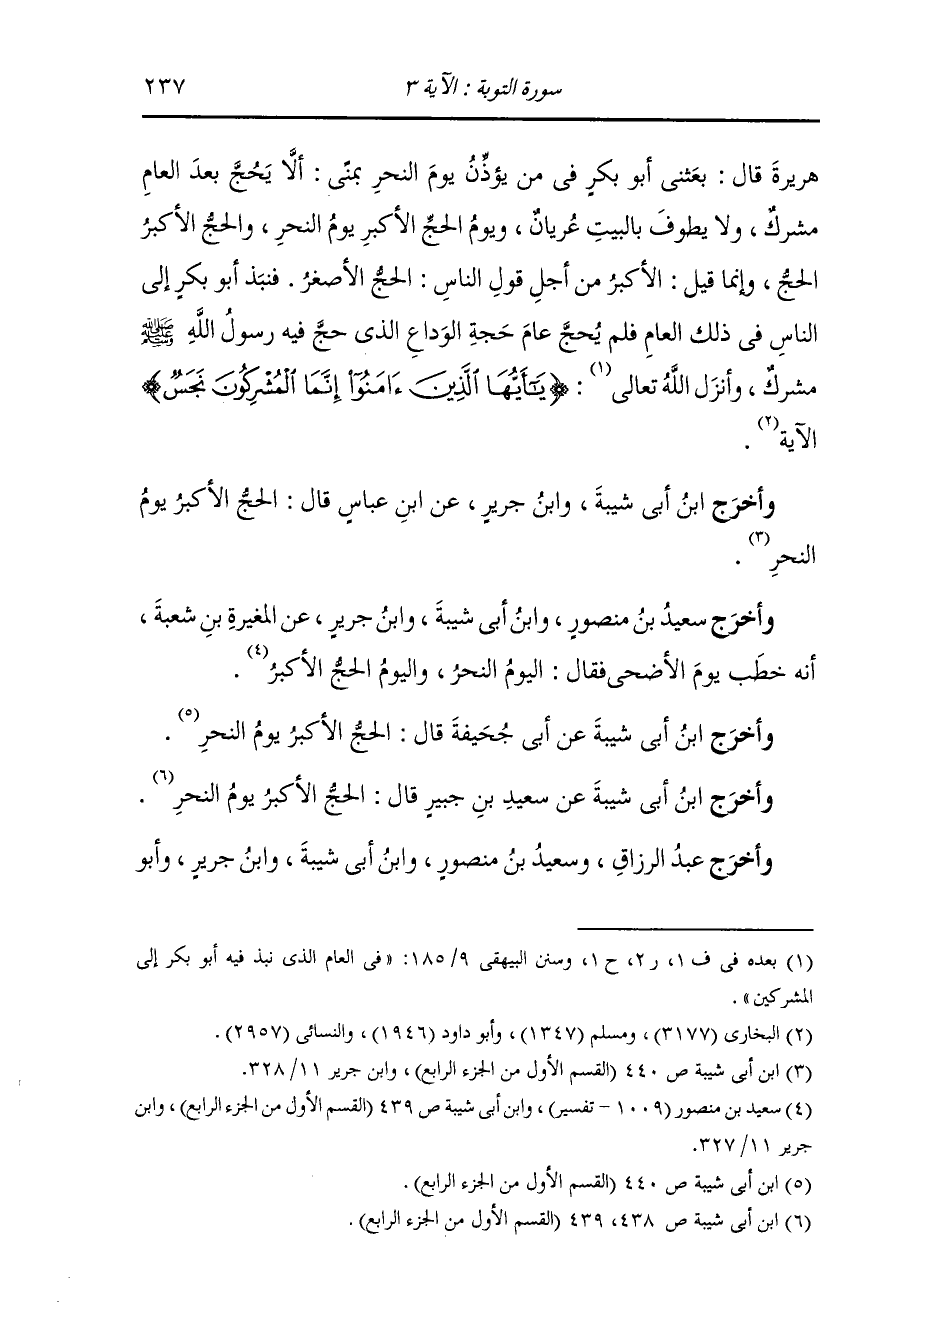 سورة التوبة : الآية ٣
٢٣٧
هريرةَ قال : بعَثنى أبو بكرٍ فى من يؤذِّنُ يومَ النحرِ بمنًى : ألَّا يَحُجَّ بعدَ العامِ
مشركٌ ، ولا يطوفَ بالبيتِ عُريانٌ ، ويومُ الحجِّ الأكبرِ يومُ النحرِ ، والحجُّ الأكبرُ
الحجُّ ، وإنما قيل : الأكبرُ من أجلِ قولِ الناسِ : الحجُّ الأصغرُ . فنبَذ أبو بكرٍ إلى
الناسِ فى ذلك العامِ فلم يُحجَّ عامَ حَجةِ الوَداعِ الذى حجَّ فيه رسولُ اللَّهِ ﷺ
مشركٌ ، وأنزَل اللَّهُ تعالى(١) : ﴿يَٰٓأَيُّهَا ٱلَّذِينَ ءَامَنُوٓا۟ إِنَّمَا ٱلْمُشْرِكُونَ نَجَسٌ﴾
الآية(٢) .
وأخرَج ابنُ أبى شيبةَ ، وابنُ جريرٍ ، عن ابنِ عباسٍ قال : الحجُّ الأكبرُ يومُ
النحرِ(٣) .
وأخرَج سعيدُ بنُ منصورٍ ، وابنُ أبى شيبةَ ، وابنُ جريرٍ ، عن المغيرةِ بنِ شعبةَ ،
أنه خطَب يومَ الأضحى فقال : اليومُ النحرُ ، واليومُ الحجُّ الأكبرُ(٤) .
وأخرَج ابنُ أبى شيبةَ عن أبى جُحَيفةَ قال : الحجُّ الأكبرُ يومُ النحرِ(٥) .
وأخرَج ابنُ أبى شيبةَ عن سعيدِ بنِ جبيرٍ قال : الحجُّ الأكبرُ يومُ النحرِ(٦) .
وأخرَج عبدُ الرزاقِ ، وسعيدُ بنُ منصورٍ ، وابنُ أبى شيبةَ ، وابنُ جريرٍ ، وأبو
(١) بعده فى ف ١، ر ٢، ح ١، وسنن البيهقى ٩/ ١٨٥: « فى العام الذى نبذ فيه أبو بكر إلى
المشركين » .
(٢) البخارى (٣١٧٧) ، ومسلم (١٣٤٧) ، وأبو داود (١٩٤٦) ، والنسائى (٢٩٥٧) .
(٣) ابن أبى شيبة ص ٤٤٠ (القسم الأول من الجزء الرابع) ، وابن جرير ١١/ ٣٢٨.
(٤) سعيد بن منصور (١٠٠٩ - تفسير) ، وابن أبى شيبة ص ٤٣٩ (القسم الأول من الجزء الرابع) ، وابن
جرير ١١/ ٣٢٧.
(٥) ابن أبى شيبة ص ٤٤٠ (القسم الأول من الجزء الرابع) .
(٦) ابن أبى شيبة ص ٤٣٨، ٤٣٩ (القسم الأول من الجزء الرابع) .